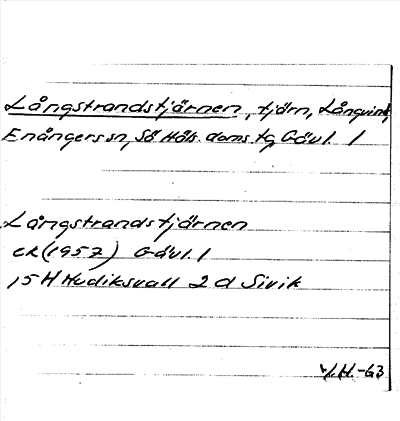 Långstrandstjärnen, tjärn, Långvind,
Enångers sn, Sö Häls. doms.tg, Gävl. l
Långstrandstjärnen
ek (1957) Gävl. l
15 H Hudiksvall 2 d Sivik
V.H.-63